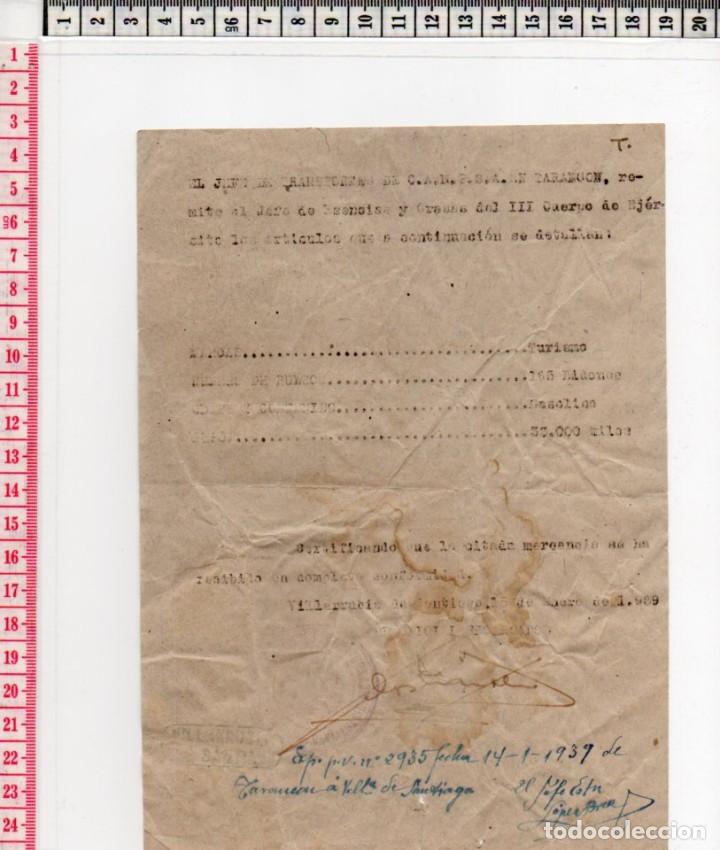 T.
EL JEFE DE TRANSPORTES DE C.A.M.P.S.A. EN TARANCON, re-
mite al Jefe de Esencias y Grasas del III Cuerpo de Ejér-
cito los articulos que a continuación se detallan:
...Turismo
NUMERO DE BULTOS...165 Bidones
CLASE Y CONTENIDO...Gasolina
...33.000 kilos
Certificando que la citada mercancia se ha
recibido en completa conformidad.
Villarrubia de Santiago, 15 de Enero de 1.939
Exp. p.v. nº 2935 fecha 14-1-1939 de
Tarancon á Vªllª de Santiago El Jefe Estn
López
todocoleccion
todocoleccion.net
1 2 3 4 5 6 7 8 9 10 11 12 13 14 15 16 17 18 19 20
1
2
3
4
5
6
7
8
9
10
11
12
13
14
15
16
17
18
19
20
21
22
23
24